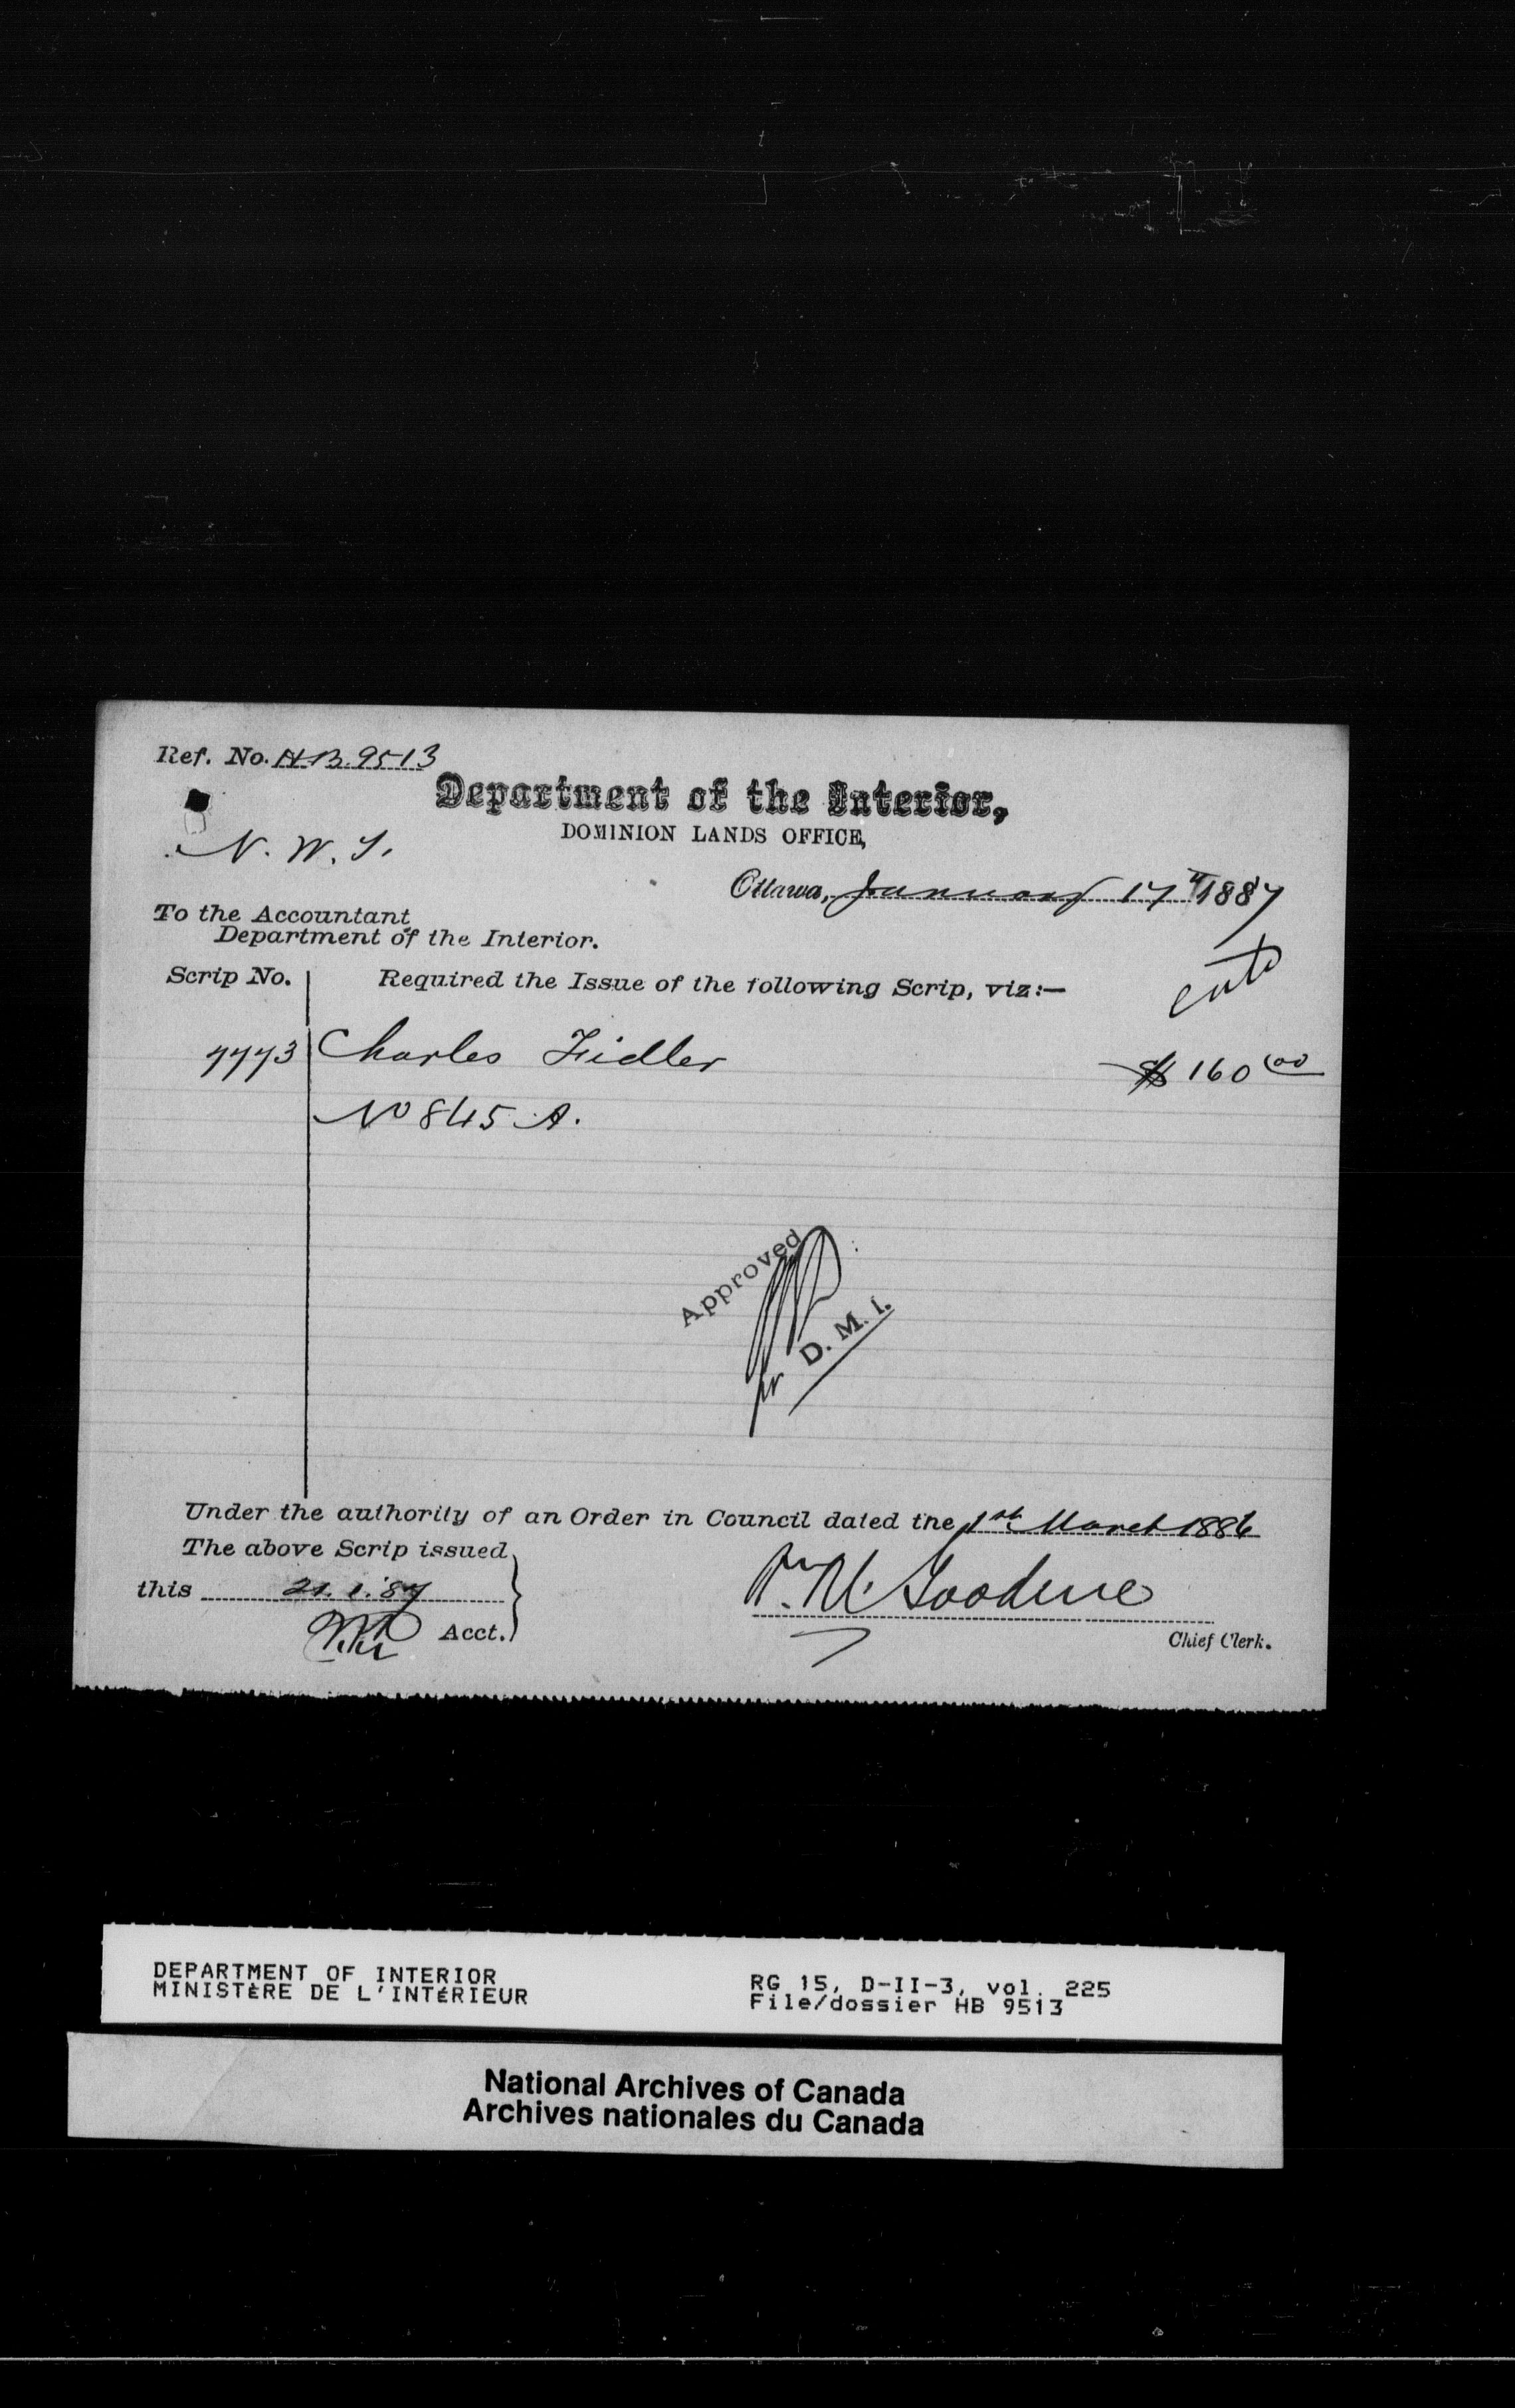 Ref. No. HB. 9513
Department of the Interior,
DOMINION LANDS OFFICE,
N. W. T.
Ottawa, January 17th 1887
To the Accountant
Department of the Interior.
Scrip No.
Required the Issue of the following Scrip, viz:—
7773 Charles Fidler $ 160 00
No 845 A.
Approved
for D. M. I.
Under the authority of an Order in Council dated the 1st March 1886
The above Scrip issued
this 21. 1. '87
Acct.
Chief Clerk.
DEPARTMENT OF INTERIOR
MINISTÈRE DE L'INTÉRIEUR
RG 15, D-II-3, vol. 225
File/dossier HB 9513
National Archives of Canada
Archives nationales du Canada